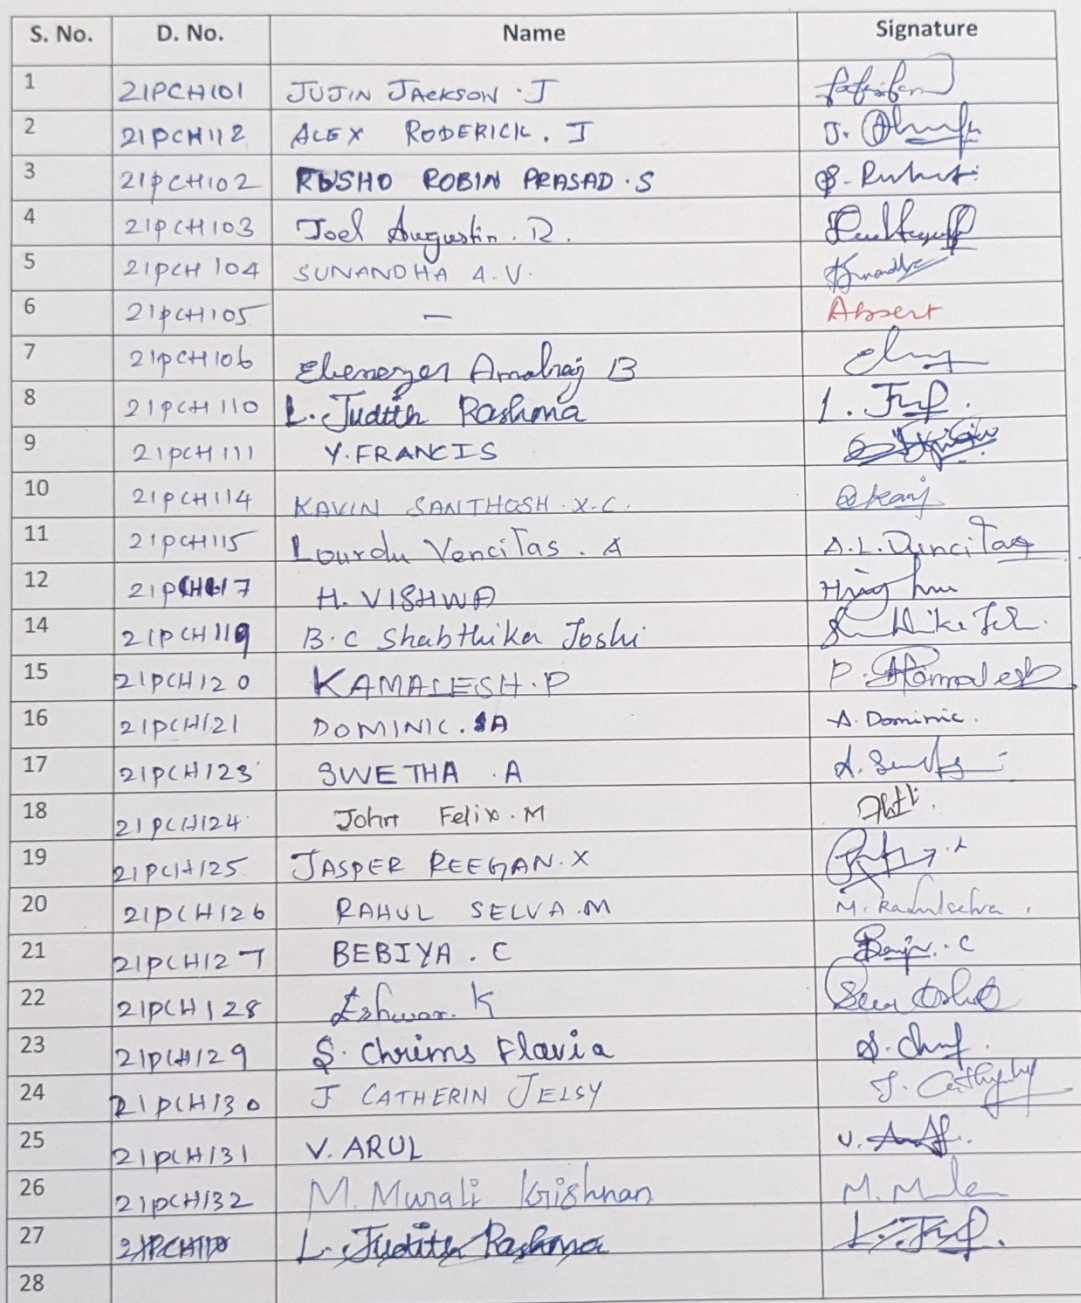 S. No. D. No. Name Signature
1 21PCH101 JUJIN JACKSON . J
2 21PCH112 ALEX RODERICK . J
3 21PCH102 RUSHO ROBIN PRASAD . S
4 21PCH103 Joel Augustin . R.
5 21PCH 104 SUNANDHA A.V.
6 21PCH105 — Absent
7 21PCH106 Ebenezer Amalraj B
8 21PCH110 L. Judith Rashma
9 21PCH111 Y. FRANCIS
10 21PCH114 KAVIN SANTHOSH . X.C.
11 21PCH115 Lourdu Vencitas . A A.L. Vencitas
12 21PCH117 H. VISHWA
14 21PCH119 B.C Shabthika Joshi
15 21PCH120 KAMALESH.P P. Kamalesh
16 21PCH121 DOMINIC . A A. Dominic.
17 21PCH123 SWETHA . A
18 21PCH124 John Felix . M
19 21PCH125 JASPER REEGAN. X
20 21PCH126 RAHUL SELVA .M M. Rahulselva .
21 21PCH127 BEBIYA . C
22 21PCH128 Eshwar. K
23 21PCH129 S. Chrims Flavia
24 21PCH130 J CATHERIN JELSY
25 21PCH131 V. ARUL
26 21PCH132 M. Murali Krishnan
27 21PCH110 L. Judith Rashma
28